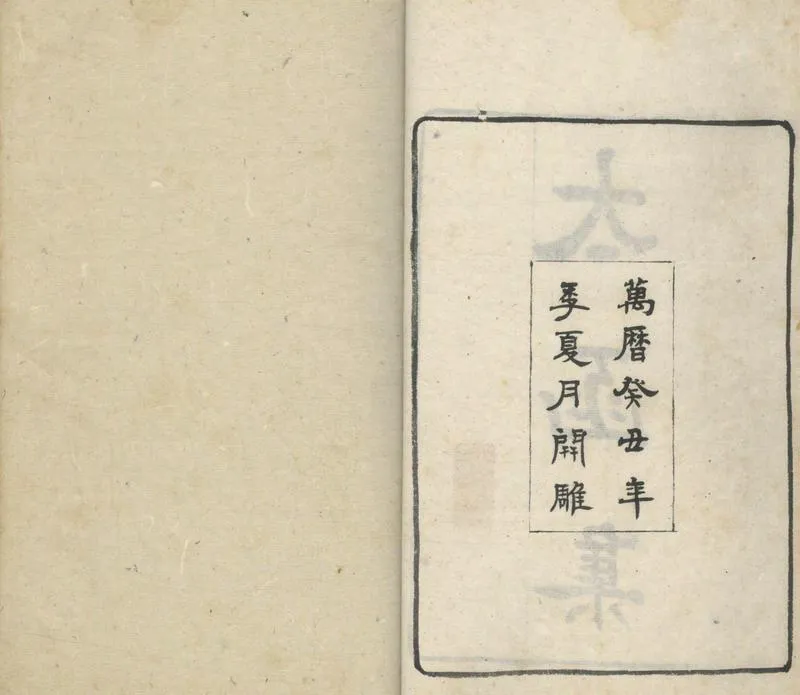 萬曆癸丑年
季夏月開雕